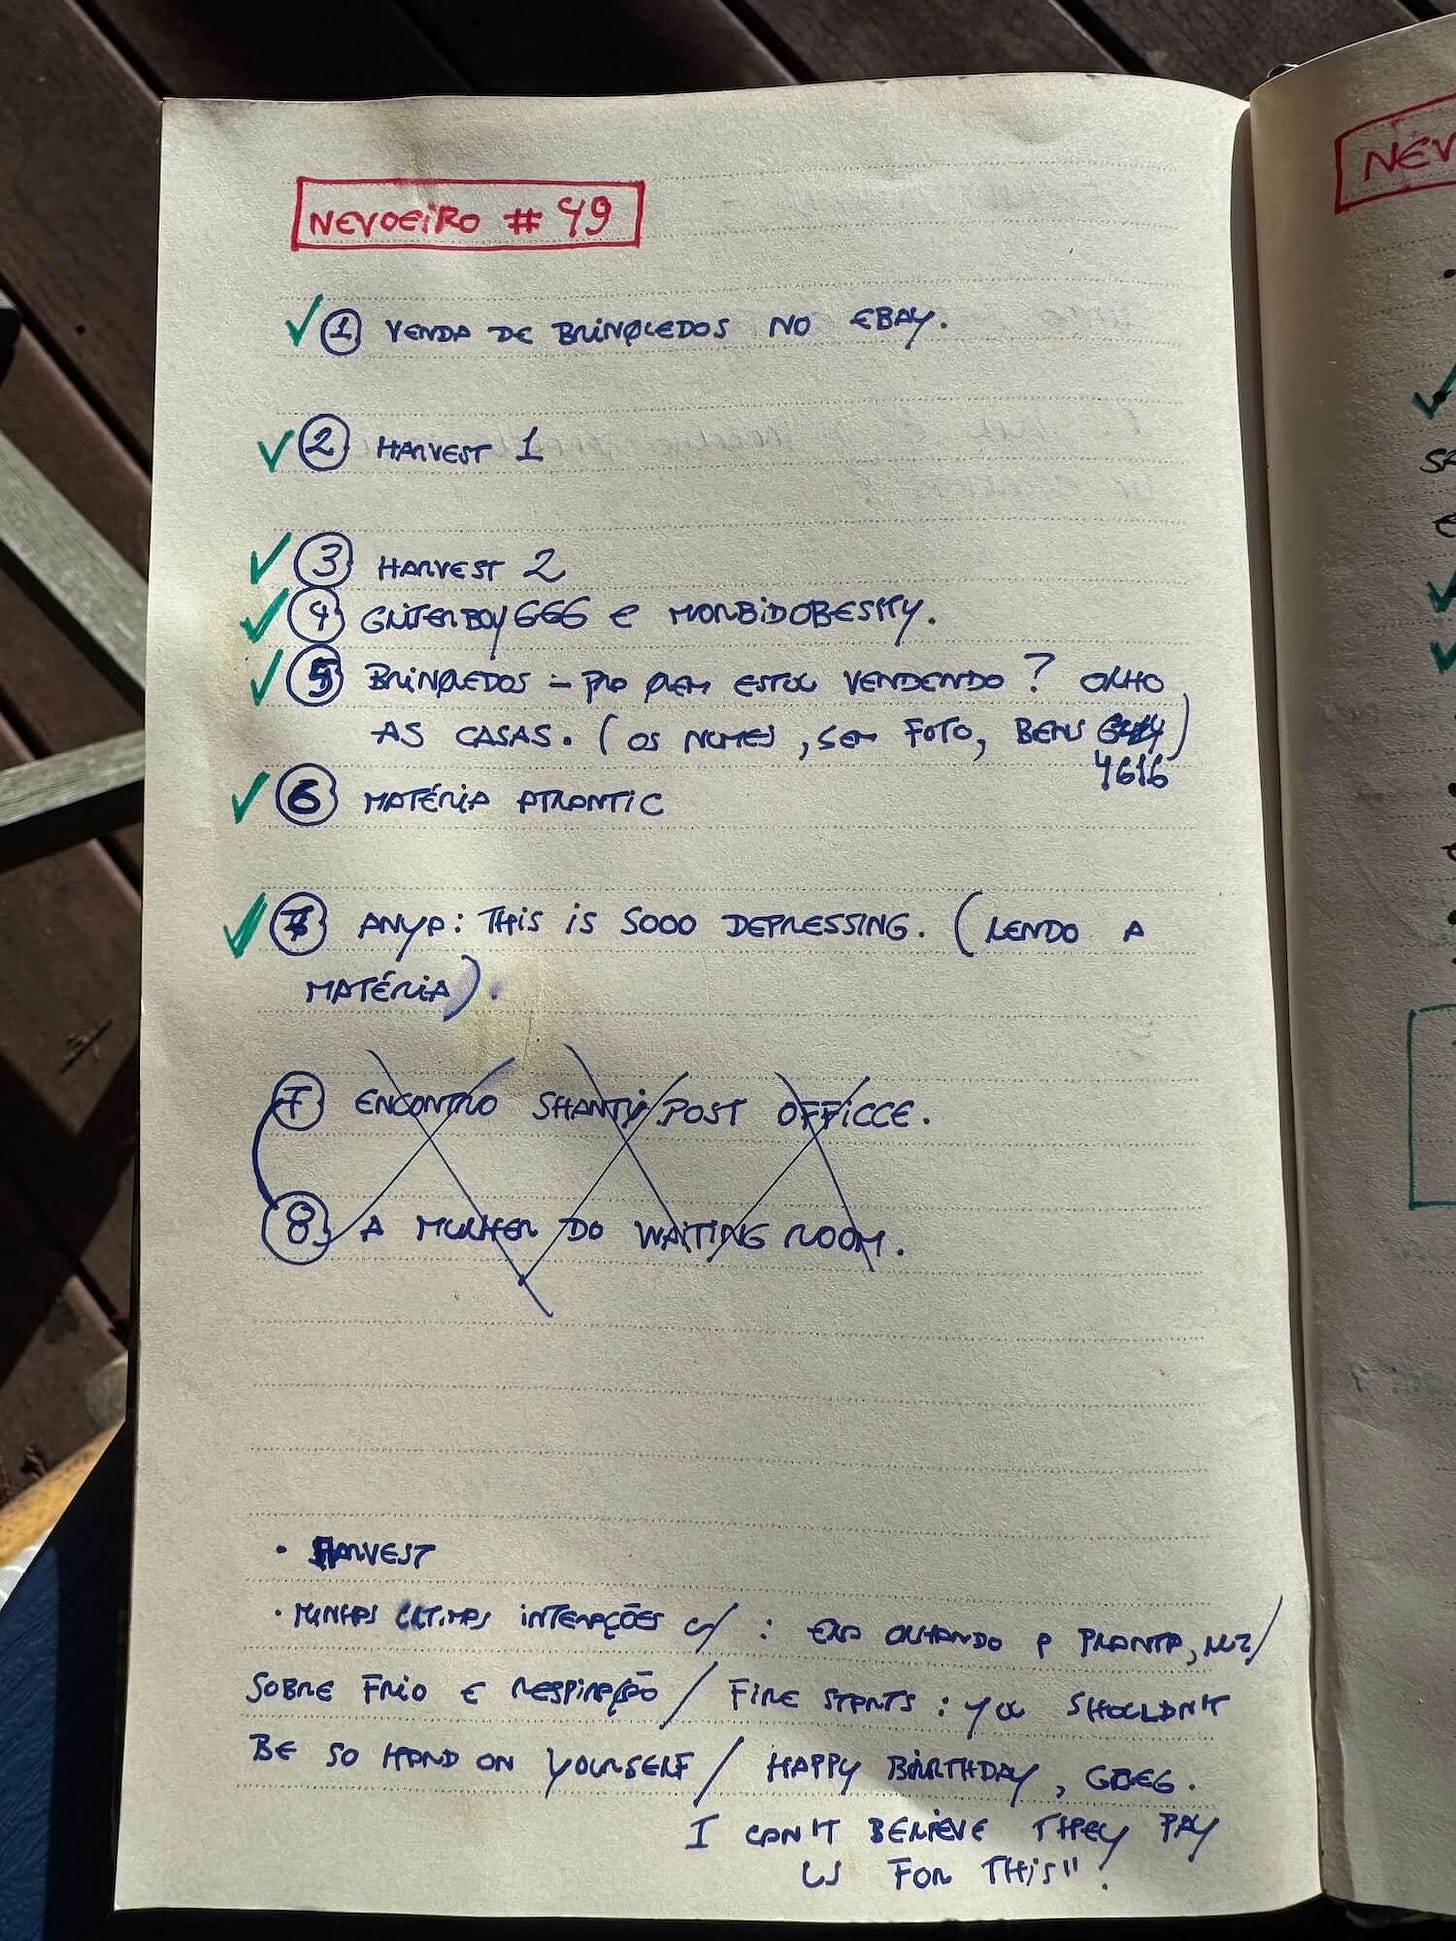 NEVOEIRO # 49
NEV
✓ 1 VENDA DE BRINQUEDOS NO EBAY.
✓ 2 HARVEST 1
✓ 3 HARVEST 2
✓ 4 GLITERBOY666 E MORBIDOBESITY.
✓ 5 BRINQUEDOS – PRO QUEM ESTOU VENDENDO? OLHO
AS CASAS. (OS NOMES, SEM FOTO, BENS
4616
✓ 6 MATÉRIA ATLANTIC
✓ 7 ANYA: THIS IS SOOO DEPRESSING. (LENDO A
MATÉRIA).
7 ENCONTRO SHANTY/POST OFFICCE.
8 A MULHER DO WAITING ROOM.
• HARVEST
• MINHAS ÚLTIMAS INTERAÇÕES C/ : OLHANDO A PLANTA, LUZ/
SOBRE FRIO E RESPIRAÇÃO / FIRE STARTS: YOU SHOULDN'T
BE SO HARD ON YOURSELF / HAPPY BIRTHDAY, GREG.
I CAN'T BELIEVE THEY PAY
US FOR THIS"!